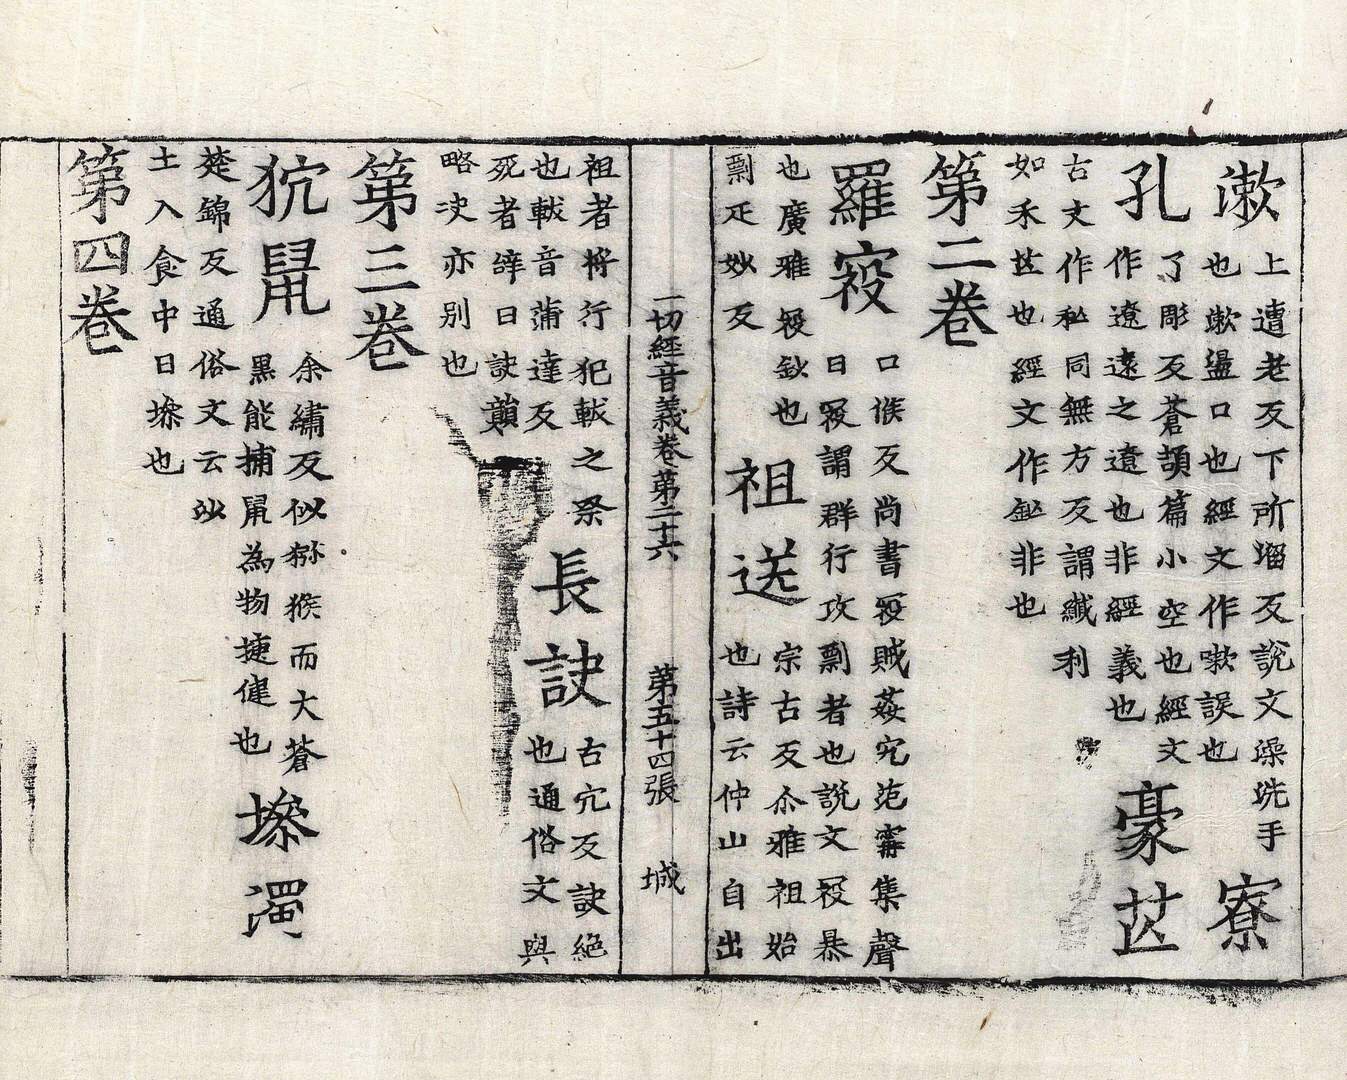 漱
上遭老反下所㴞反說文澡洗手
也漱盪口也經文作嗽誤也
寮
孔
了彫反蒼頡篇小空也經文
作遼遠之遼也非經義也
豪芒
古文作𥝢同無方反謂纖利
如禾芒也經文作鋩非也
第二卷
羅寇
口候反尚書寇賊姦宄范甯集聲
曰寇謂群行攻剽者也說文寇暴
也廣雅寇鈔也
剽疋妙反
祖送
宗古反尒雅祖始
也詩云仲山自出
一切經音義卷第二十六 第五十四張 城
祖者將行犯軷之祭
也軷音蒲達反
長訣
古穴反訣絕
也通俗文與
死者辝曰訣
略决亦别也
第三卷
狖鼠
余繡反似猕猴而大蒼
黑能捕鼠為物捷健也
墋濁
楚錦反通俗文云沙
土入食中曰墋也
第四卷